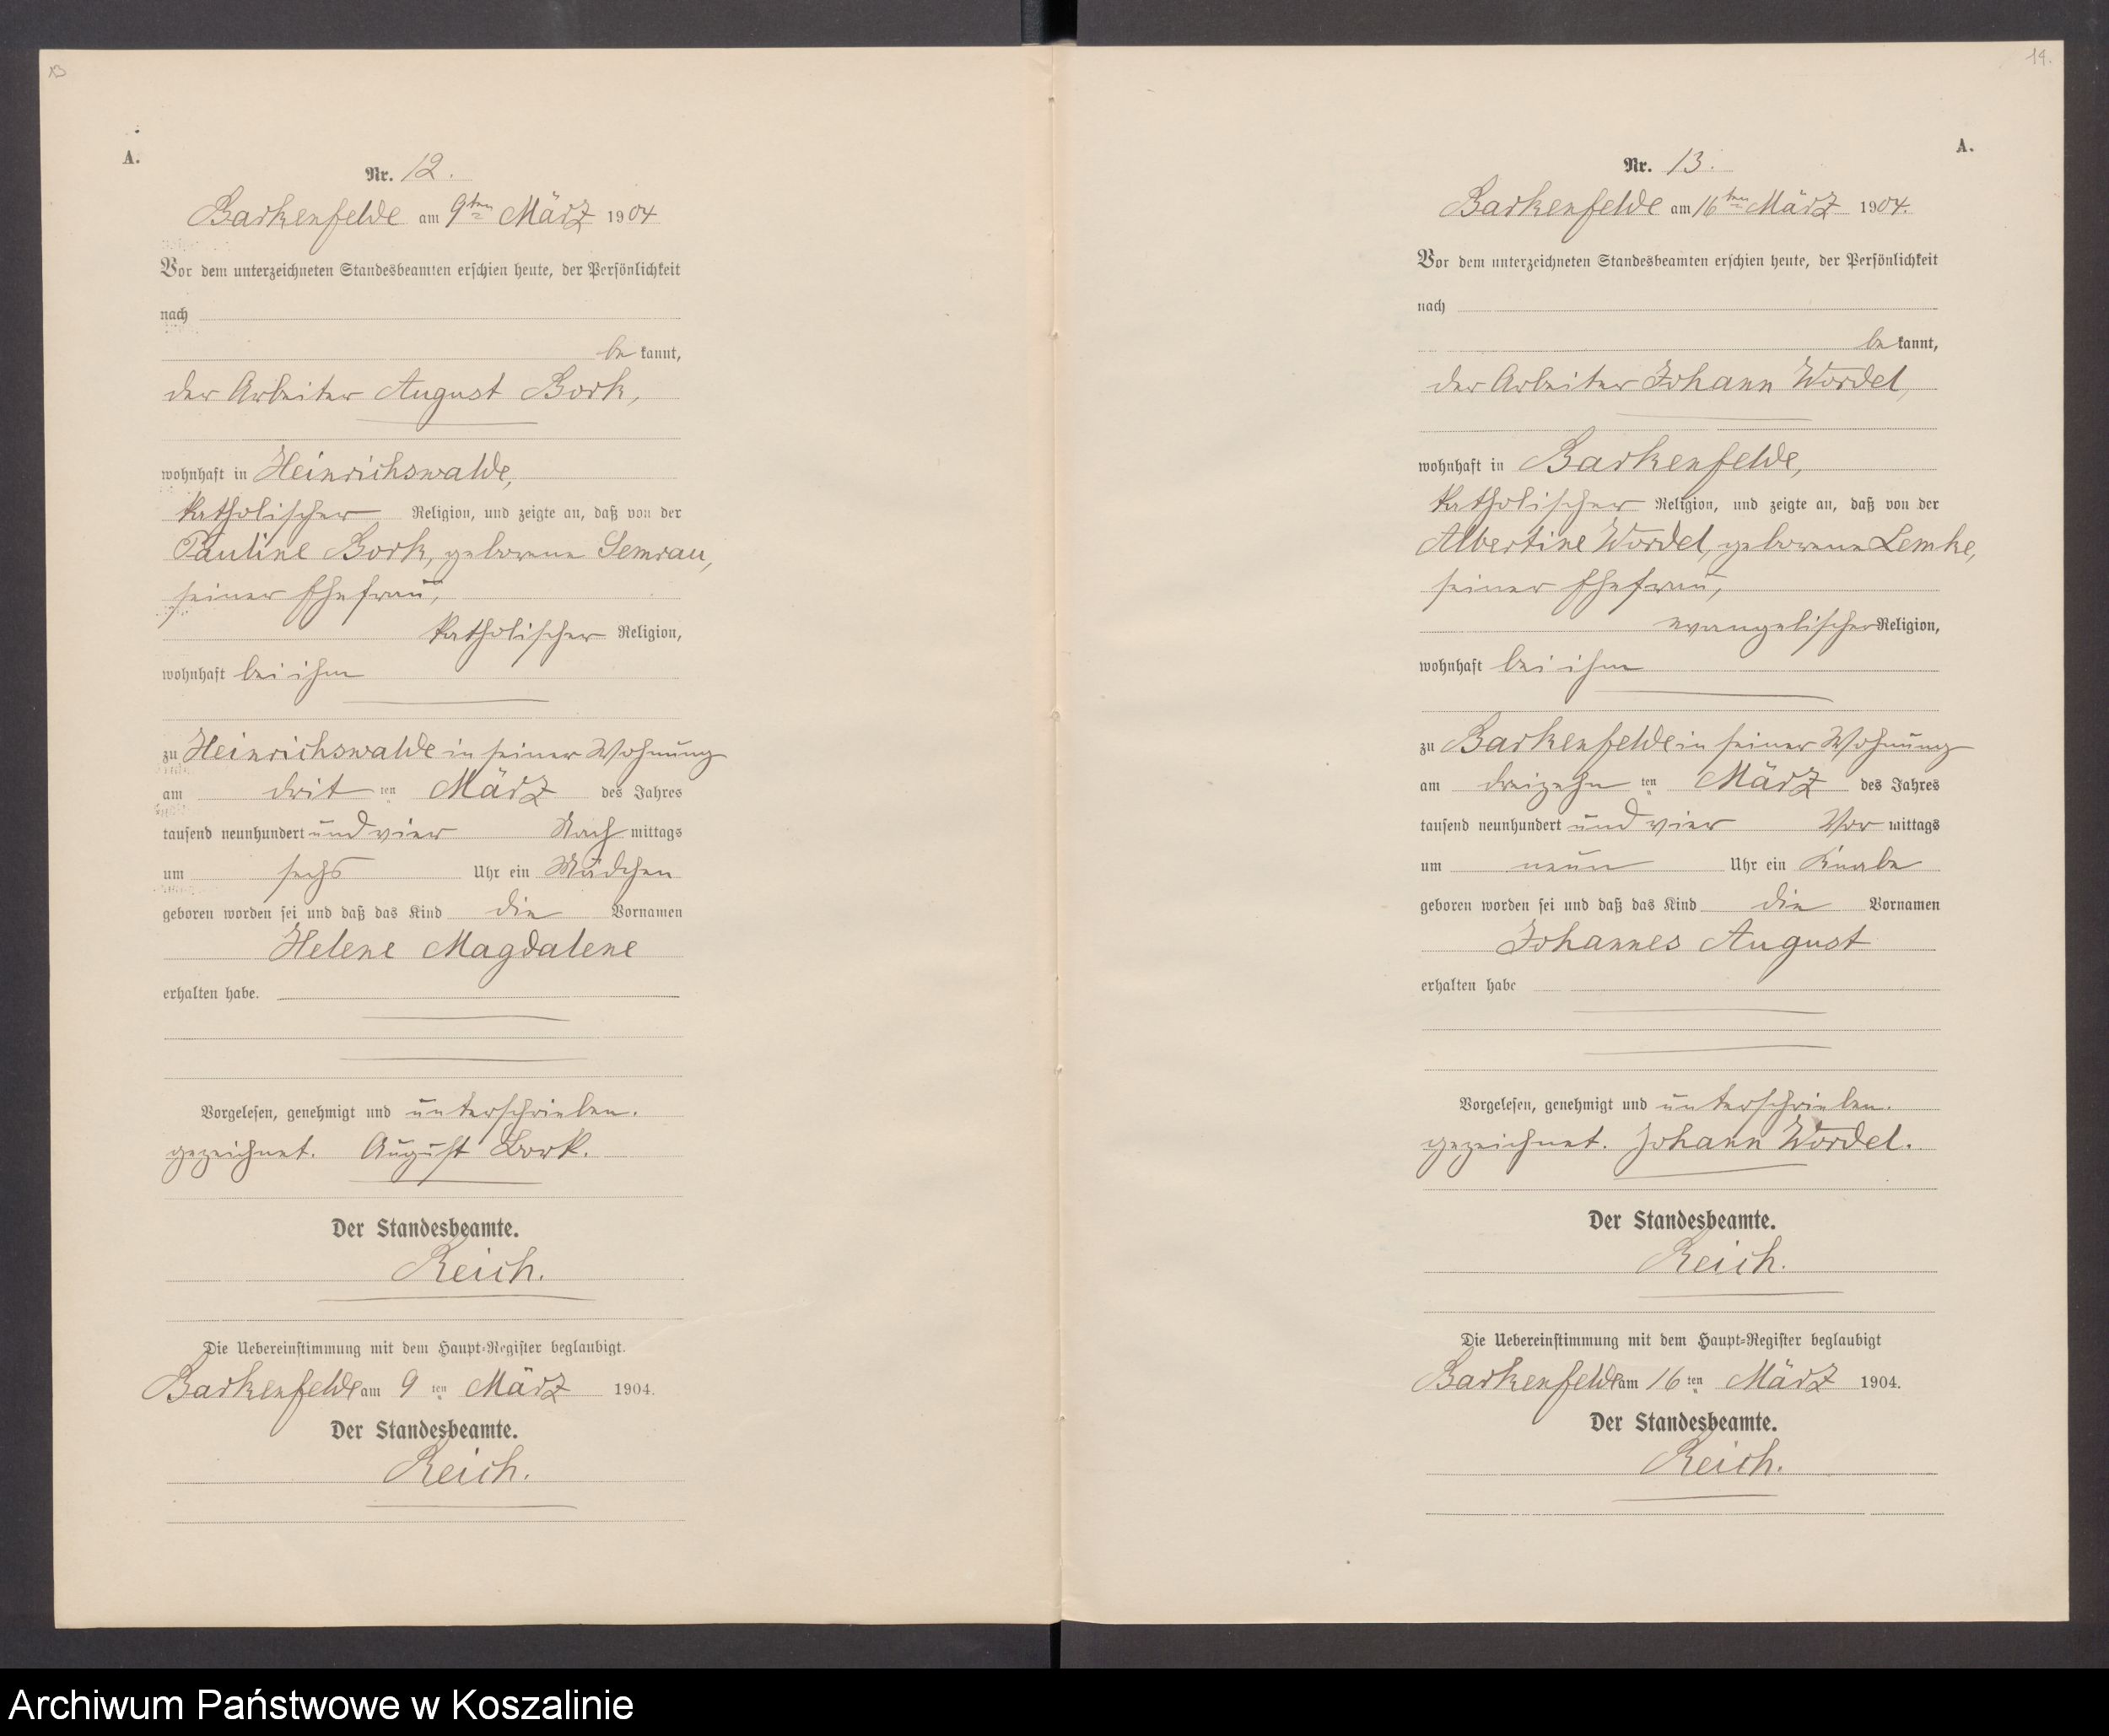 13
A.
Nr. 12.
Barkenfelde am 9ten März 1904
Vor dem unterzeichneten Standesbeamten erschien heute, der Persönlichkeit
nach
be kannt,
der Arbeiter August Bork,
wohnhaft in Heinrichswalde,
katholischer Religion, und zeigte an, daß von der
Pauline Bork, geborene Semrau,
seiner Ehefrau,
katholischer Religion,
wohnhaft bei ihm
zu Heinrichswalde in seiner Wohnung
am drit ten März des Jahres
tausend neunhundert und vier Nach mittags
um sechs Uhr ein Mädchen
geboren worden sei und daß das Kind die Vornamen
Helene Magdalene
erhalten habe.
Vorgelesen, genehmigt und unterschrieben.
gezeichnet. August Bork.
Der Standesbeamte.
Reich.
Die Uebereinstimmung mit dem Haupt-Register beglaubigt.
Barkenfelde am 9 ten März 1904.
Der Standesbeamte.
Reich.
14.
A.
Nr. 13.
Barkenfelde am 16ten März 1904.
Vor dem unterzeichneten Standesbeamten erschien heute, der Persönlichkeit
nach
be kannt,
der Arbeiter Johann Wordel,
wohnhaft in Barkenfelde,
katholischer Religion, und zeigte an, daß von der
Albertine Wordel, geborene Lemke,
seiner Ehefrau,
evangelischer Religion,
wohnhaft bei ihm
zu Barkenfelde in seiner Wohnung
am dreizehn ten März des Jahres
tausend neunhundert und vier Vor mittags
um neun Uhr ein Knabe
geboren worden sei und daß das Kind die Vornamen
Johannes August
erhalten habe
Vorgelesen, genehmigt und unterschrieben.
gezeichnet. Johann Wordel.
Der Standesbeamte.
Reich.
Die Uebereinstimmung mit dem Haupt-Register beglaubigt
Barkenfelde am 16 ten März 1904.
Der Standesbeamte.
Reich.
Archiwum Państwowe w Koszalinie